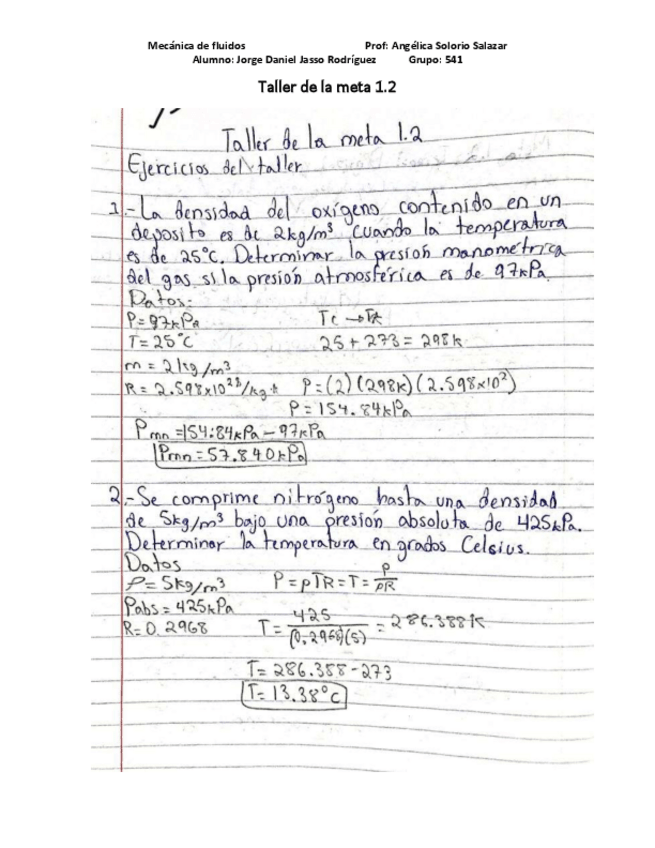 Mecánica de fluidos Prof: Angélica Solorio Salazar
Alumno: Jorge Daniel Jasso Rodríguez Grupo: 541
Taller de la meta 1.2
Taller de la meta 1.2
Ejercicios del taller
1.- La densidad del oxígeno contenido en un
deposito es de 2kg/m³ cuando la temperatura
es de 25°C. Determinar la presión manométrica
del gas si la presión atmosférica es de 97kPa
Datos:
P=97kPa Tc → Tk
T=25°C 25+273=298k
m=2kg/m³
R=2.598x10²J/kg·k P=(2)(298k)(2.598x10²)
P=154.84kPa
Pmn=154.84kPa-97kPa
Pmn=57.840kPa
2.- Se comprime nitrógeno hasta una densidad
de 5kg/m³ bajo una presión absoluta de 425kPa.
Determinar la temperatura en grados Celsius.
Datos
ρ=5kg/m³ P=ρTR=T=P/ρR
Pabs=425kPa
R=0.2968 T=425/(0.2968)(5)=286.388K
T=286.388-273
T=13.38°C